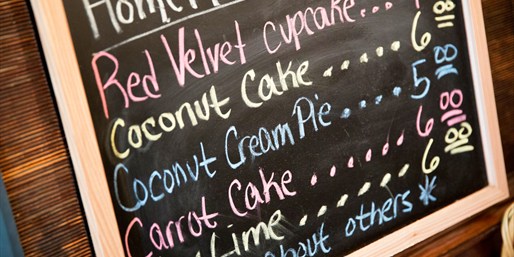 Home M
Red Velvet cupcake...
Coconut Cake ..... 6 00
Coconut Cream Pie .... 5 00
Carrot Cake ...... 6 00
Lime ....... 6 00
about others *